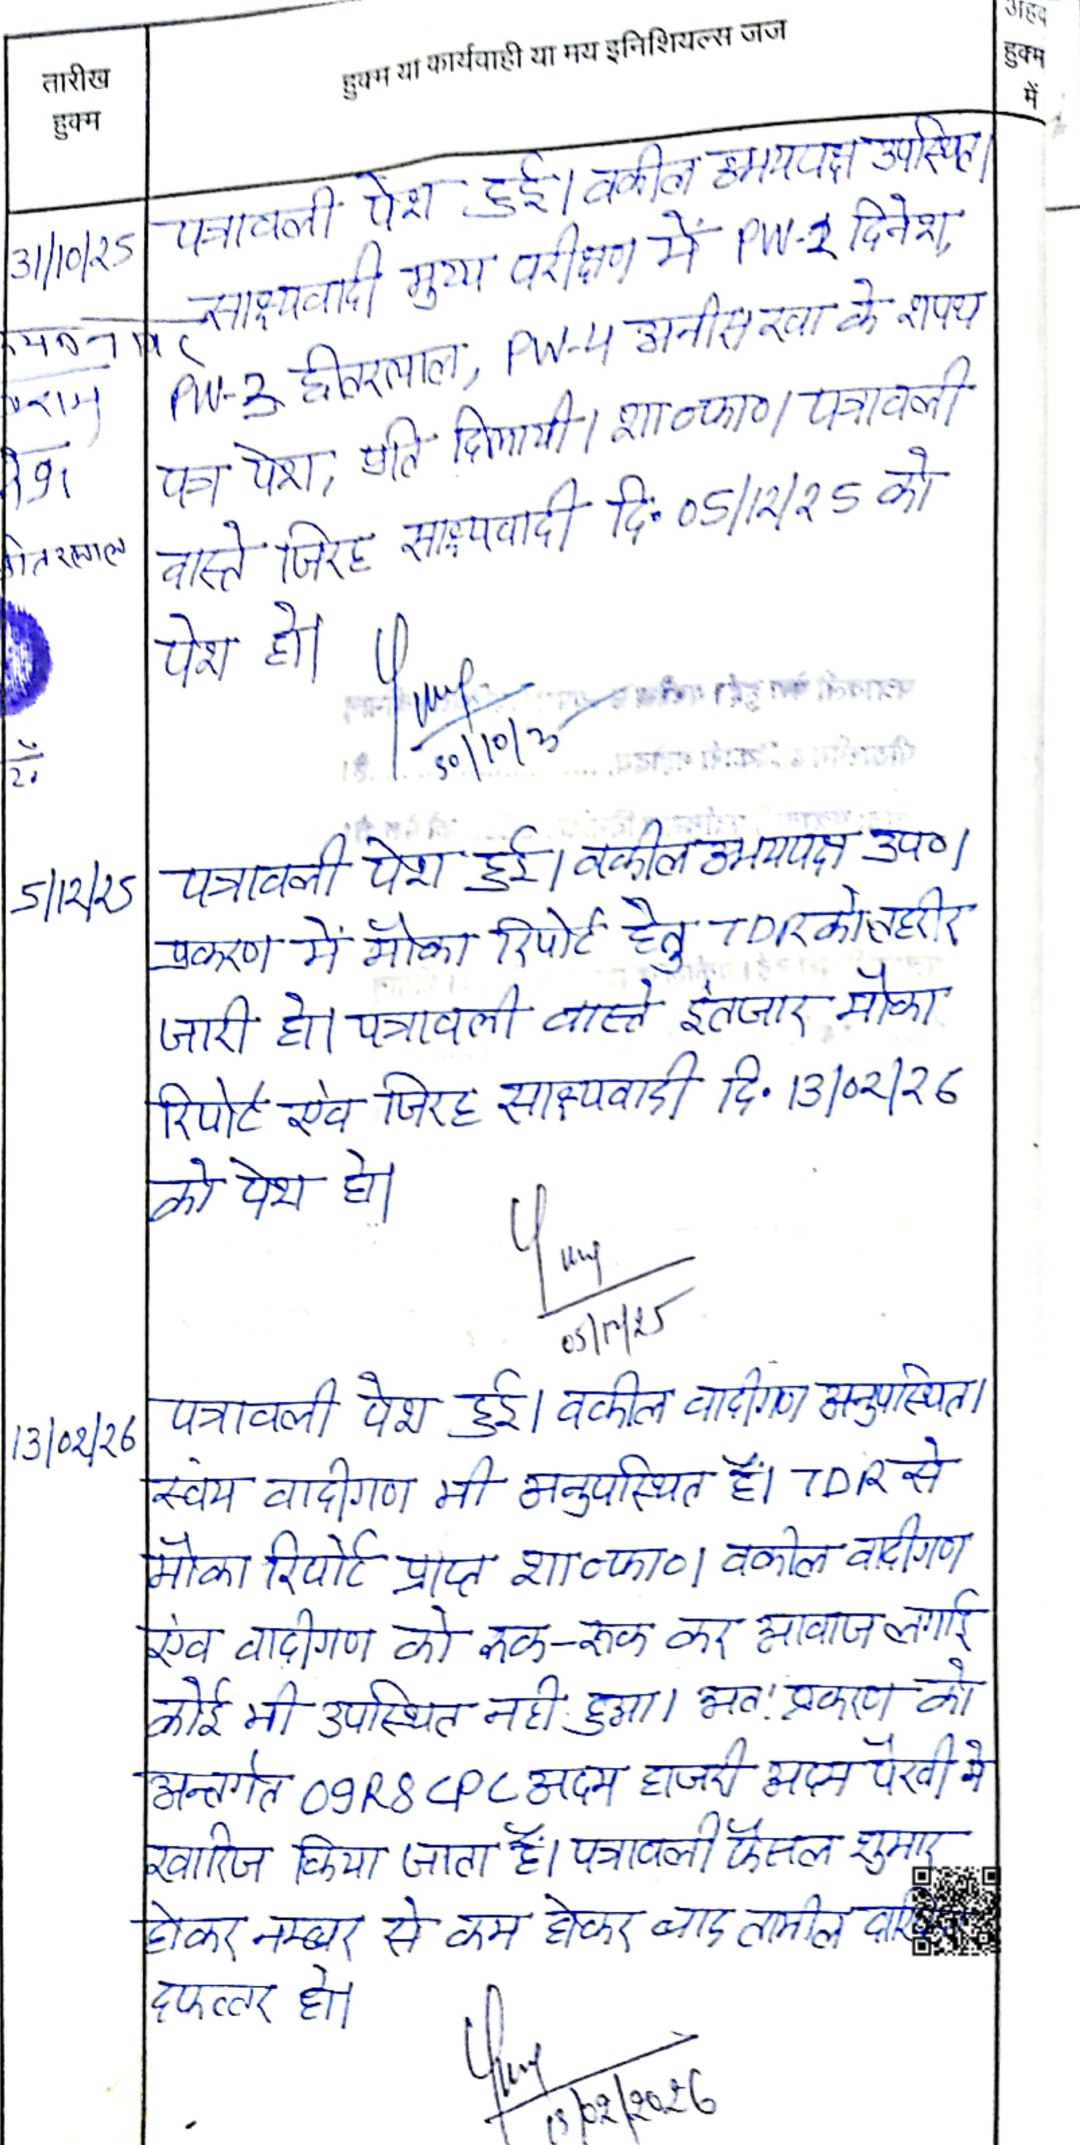 तारीख
हुक्म
हुक्म या कार्यवाही या मय इनिशियल्स जज
अहद
हुक्म
में
31/10/25
पत्रावली पेश हुई। वकील उभयपक्ष उपस्थित।
साक्ष्यवादी मुख्य परीक्षण में PW-2 दिनेश,
PW-3 छीतरलाल, PW-4 अनीस खा के शपथ
पत्र पेश, प्रति दिलायी। शा०फा०। पत्रावली
वास्ते जिरह साक्ष्यवादी दि. 05/12/25 को
पेश हो।
5/12/25
पत्रावली पेश हुई। वकील उभयपक्ष उप०।
प्रकरण में मौका रिपोर्ट हेतु TDR को तहरीर
जारी हो। पत्रावली वास्ते इंतजार मौका
रिपोर्ट एंव जिरह साक्ष्यवादी दि. 13/02/26
को पेश हो।
05/12/25
13/02/26
पत्रावली पेश हुई। वकील वादीगण अनुपस्थित।
स्वंय वादीगण भी अनुपस्थित हैं। TDR से
मौका रिपोर्ट प्राप्त शा०फा०। वकील वादीगण
एंव वादीगण को रूक-रूक कर आवाज लगाई
कोई भी उपस्थित नही हुआ। अतः प्रकरण को
अन्तर्गत O9R8 CPC अदम हाजरी अदम पैरवी मे
खारिज किया जाता हैं। पत्रावली फैसल शुमार
होकर नम्बर से कम होकर बाद तामील
दफ्तर हो।
13/02/2026